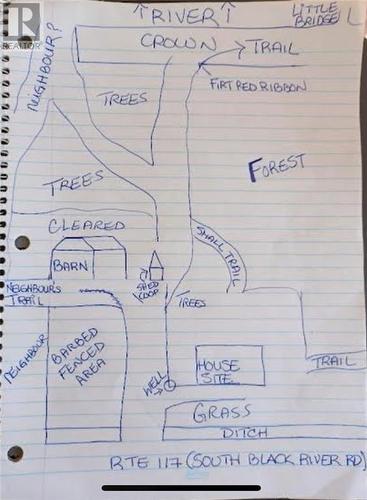 ↑RIVER↑
LITTLE
BRIDGE
REALTOR
CROWN
TRAIL
NEIGHBOUR?
TREES
FIRT RED RIBBON
FOREST
TREES
CLEARED
SMALL TRAIL
BARN
SHED
COOP
NEIGHBOURS
TRAIL
TREES
NEIGHBOUR
BARBED
FENCED
AREA
HOUSE
SITE
TRAIL
WELL
GRASS
DITCH
RTE 117 (SOUTH BLACK RIVER RD)